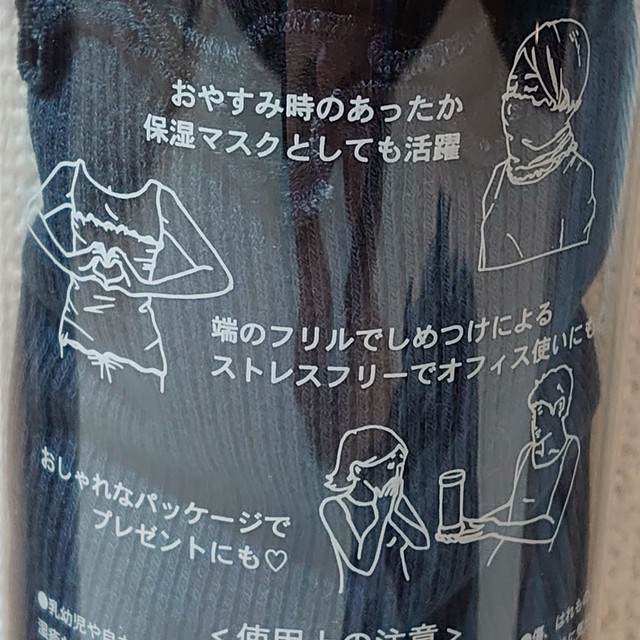 おやすみ時のあったか
保湿マスクとしても活躍
端のフリルでしめつけによる
ストレスフリーでオフィス使いにも
おしゃれなパッケージで
プレゼントにも♡
●乳幼児や
<使用上の注意>
はれもの